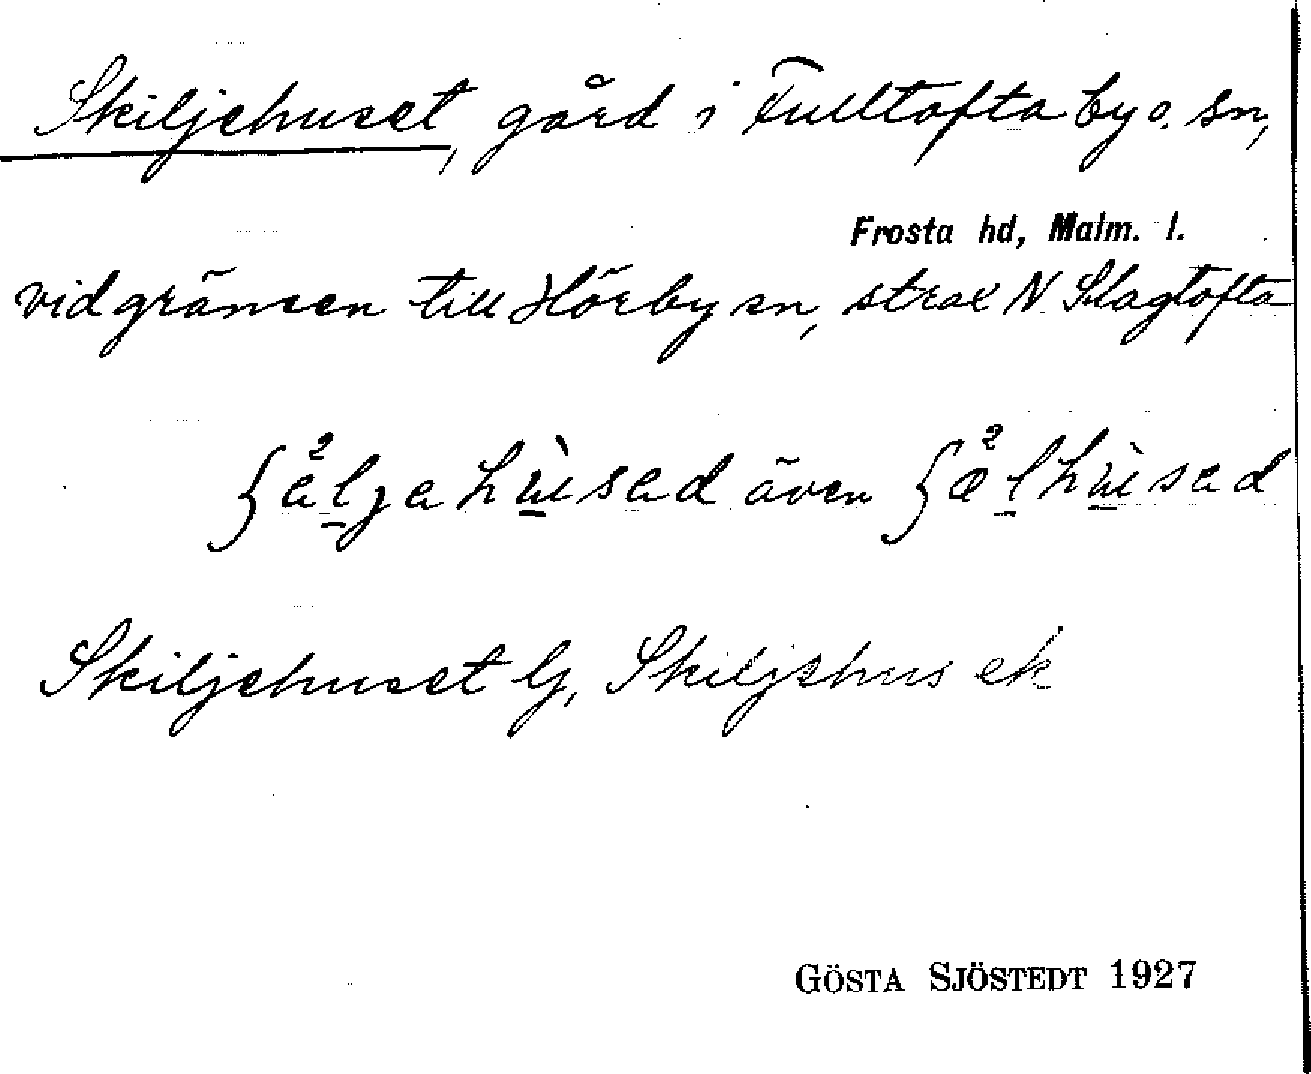 Skiljehuset, gård i Fulltofta by o. sn,
Frosta hd, Malm. l.
vid gränsen till Hörby sn, strax N Slagtofta
även
Skiljehuset Gj, Skiljshus ek
GÖSTA SJÖSTEDT 1927